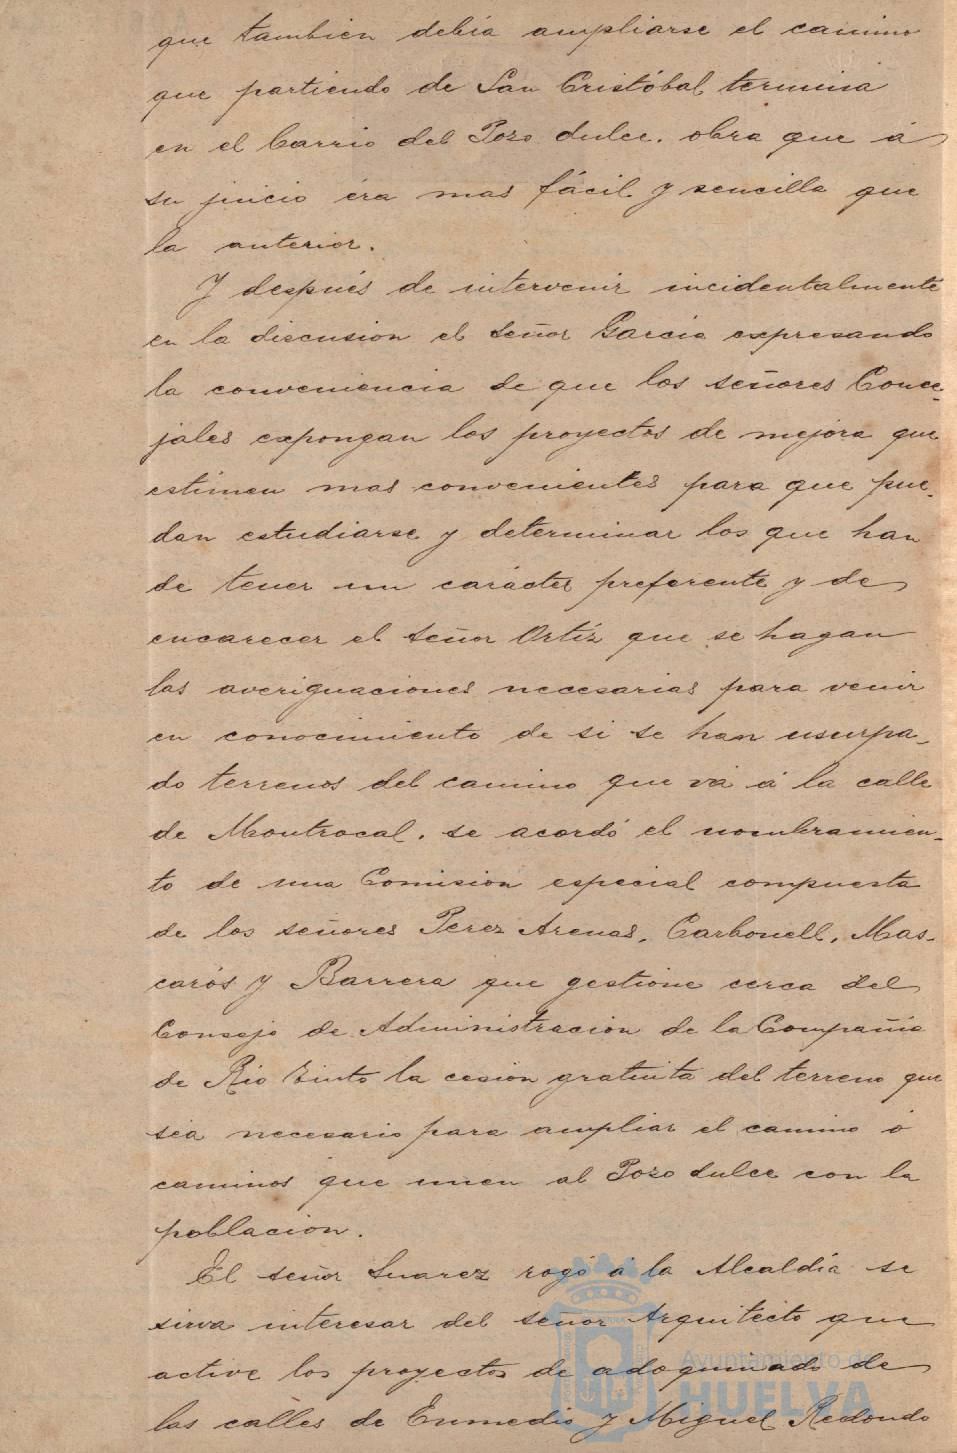 que tambien debía ampliarse el camino
que partiendo de San Cristóbal termina
en el barrio del Pozo dulce. obra que á
su juicio éra mas fácil y sencilla que
la anterior.
Y después de intervenir incidentalmente
en la discusion el Señor García expresando
la conveniencia de que los señores Conce-
jales expongan los proyectos de mejora que
estimen mas convenientes para que pue-
dan estudiarse y determinar los que han
de tener un carácter preferente y de
encarecer el Señor Ortíz que se hagan
las averiguaciones necesarias para venir
en conocimiento de si se han usurpa-
do terrenos del camino que vá á la calle
de Montrocal. se acordó el nombramien-
to de una Comision especial compuesta
de los señores Perez Arenas, Carbonell, Mas-
carós y Barrera que gestione cerca del
Consejo de Administracion de la Compañia
de Rio Tinto la cesión gratuita del terreno que
séa necesario para ampliar el camino ó
caminos que unen al Pozo dulce con la
poblacion.
El señor Suarez rogó á la Alcaldía se
sirva interesar del señor Arquitecto que
active los proyectos de adoquinado de
las calles de Enmedio y Miguel Redondo
Ayuntamiento de
HUELVA